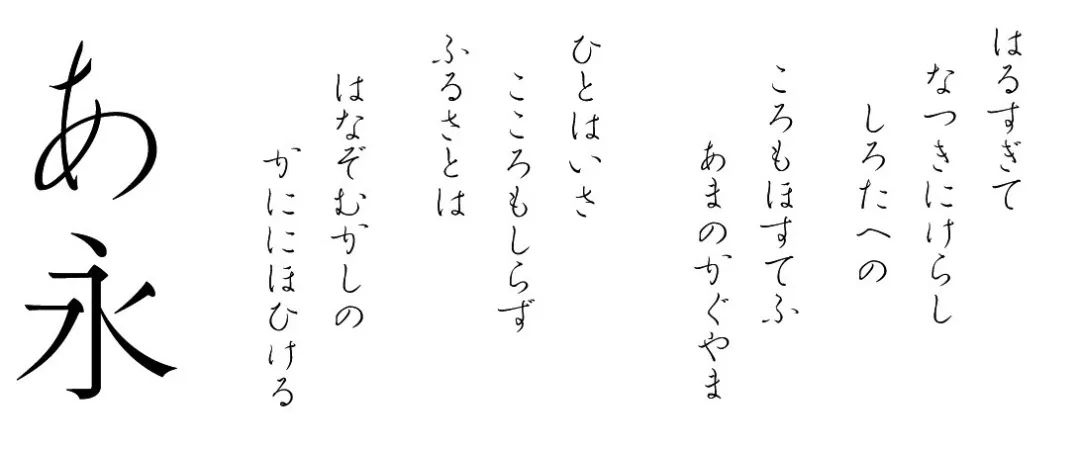 はるすぎて
なつきにけらし
しろたへの
ころもほすてふ
あまのかぐやま
ひとはいさ
こころもしらず
ふるさとは
はなぞむかしの
かににほひける
あ永